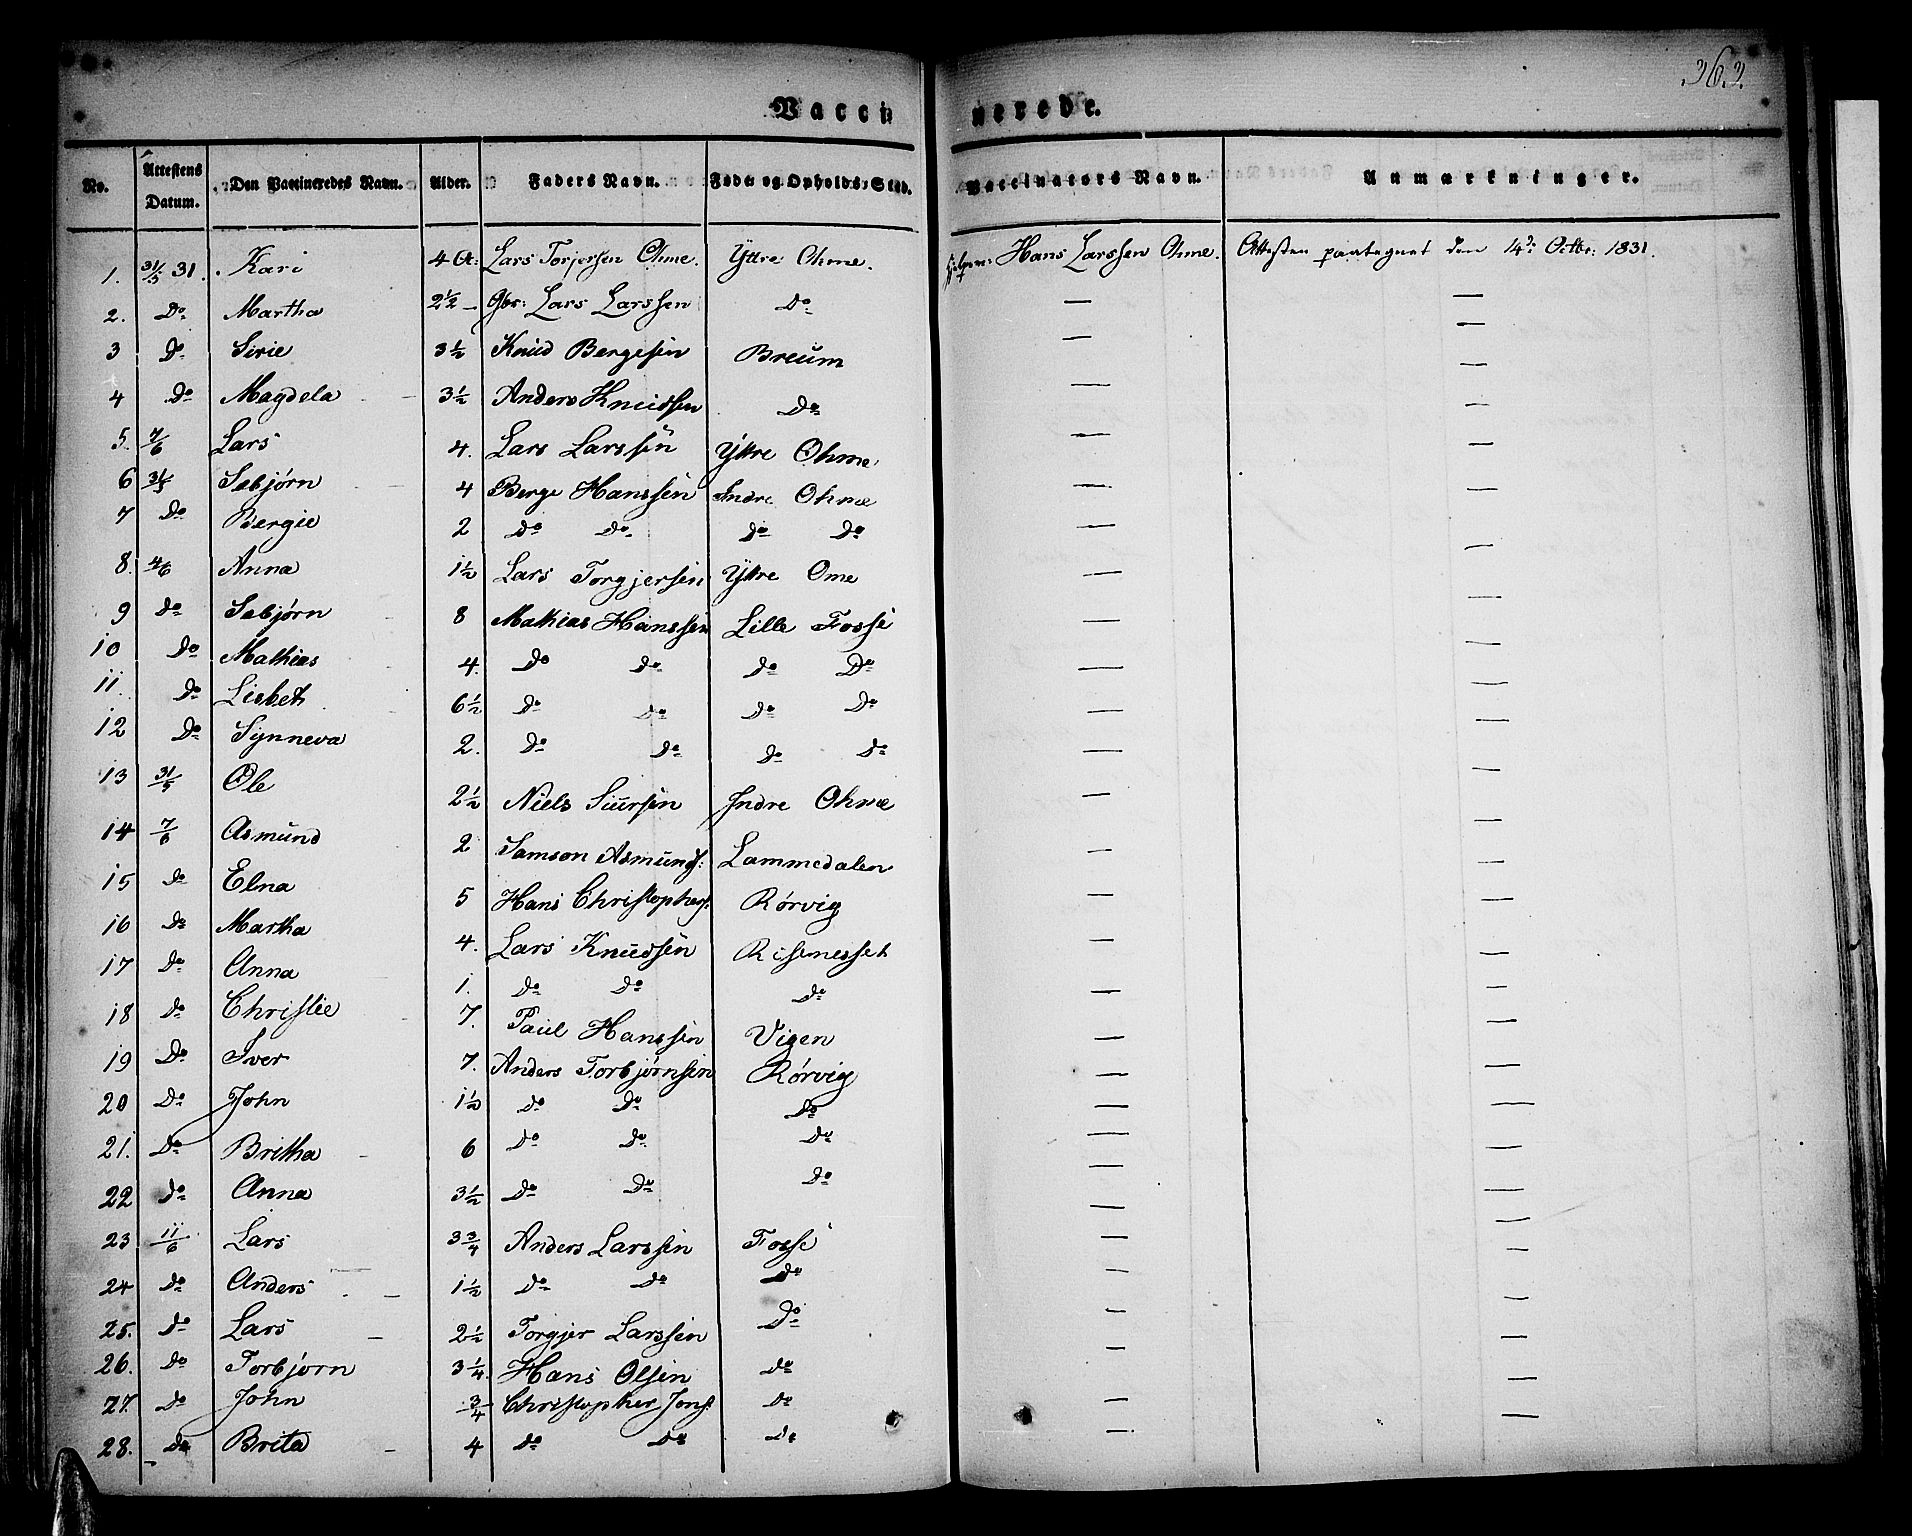 363.
Vaccinerede.
No. Attestens Datum. Den Vaccineredes Navn. Alder. Faders Navn. Føde og Opholds-Sted. Vaccinators Navn. Anmærkninger.
1. 31/5 31. Kari 4 A: Lars Torjersen Ohme. Yttre Ohme. Hans Larssen Ohme. Attesten paategnet den 14de Octbr: 1831.
2. Do Martha 2 1/2 - Gbr: Lars Larssen Do — —
3 Do Sirie 3 1/2 Knud Bergesen Breum — —
4 Do Magdela 3 1/2 Anders Knudsen Do — —
5. 7/6 Lars 4. Lars Larssen Yttre Ohme — —
6 31/5 Sebjørn 4 Berge Hanssen Indre Ohme — —
7 Do Bergie 2 Do Do Do Do — —
8. 4/6 Anna 1 1/2 Lars Torgjersen Yttre Ome — —
9 Do Sebjørn 8 Mathias Hanssen Lille Fosse — —
10 Do Mathias 4. Do Do Do Do — —
11. Do Lisbet 6 1/2 Do Do Do Do — —
12 Do Synneva 2. Do Do Do Do — —
13 31/5 Ole 2 1/2 Niels Siursen Indre Ohme — —
14 7/6 Asmund 2 Samson Asmunds: Lammedalen — —
15 Do Elna 5 Hans Christophers: Rørvig — —
16 Do Martha 4. Lars Knudsen Risenesset — —
17 Do Anna 1. Do Do Do — —
18 Do Christie 7. Paul Hanssen Vigen — —
19 Do Iver 7. Anders Torbjørnsen Rørvig — —
20 Do John 1 1/2 Do Do Do — —
21. Do Britha 6 Do Do Do — —
22 Do Anna 3 1/2 Do Do Do — —
23 11/6 Lars 3 3/4 Anders Larssen Fosse — —
24 Do Anders 1 1/2 Do Do Do — —
25. Do Lars 2 1/2 Torgjer Larssen Do — —
26. Do Torbjørn 3 1/4. Hans Olsen Do — —
27. Do John 3/4 Christopher Jons: Do — —
28. Do Brita 4 Do Do Do —